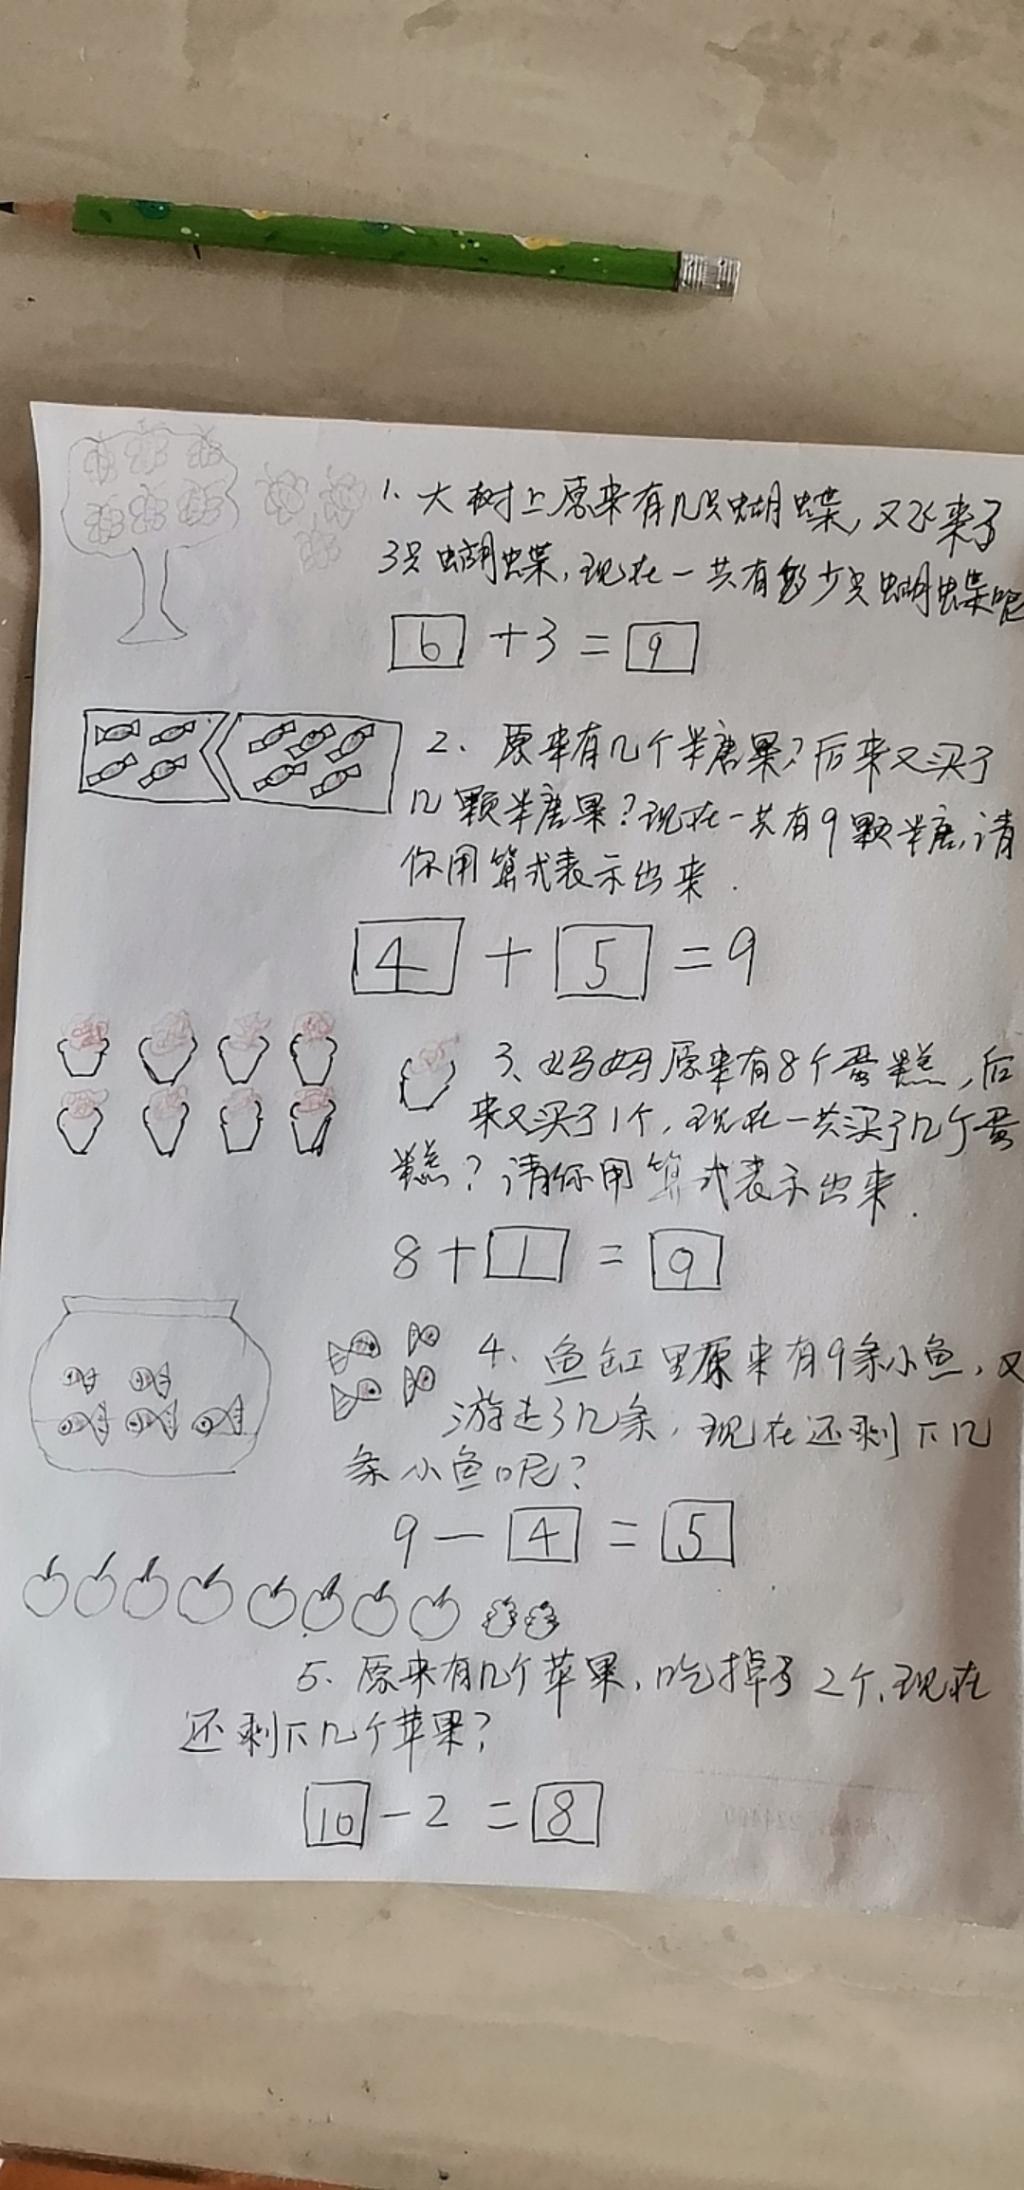 1、大树上原来有几只蝴蝶,又飞来了
3只蝴蝶,现在一共有多少只蝴蝶呢
6 + 3 = 9
2、原来有几个糖果?后来又买了
几颗糖果?现在一共有9颗糖,请
你用算式表示出来.
4 + 5 = 9
3、妈妈原来有8个蛋糕,后
来又买了1个,现在一共买了几个蛋
糕?请你用算式表示出来.
8 + 1 = 9
4、鱼缸里原来有9条小鱼,又
游走了几条,现在还剩下几
条小鱼呢?
9 - 4 = 5
5、原来有几个苹果,吃掉了2个,现在
还剩下几个苹果?
10 - 2 = 8